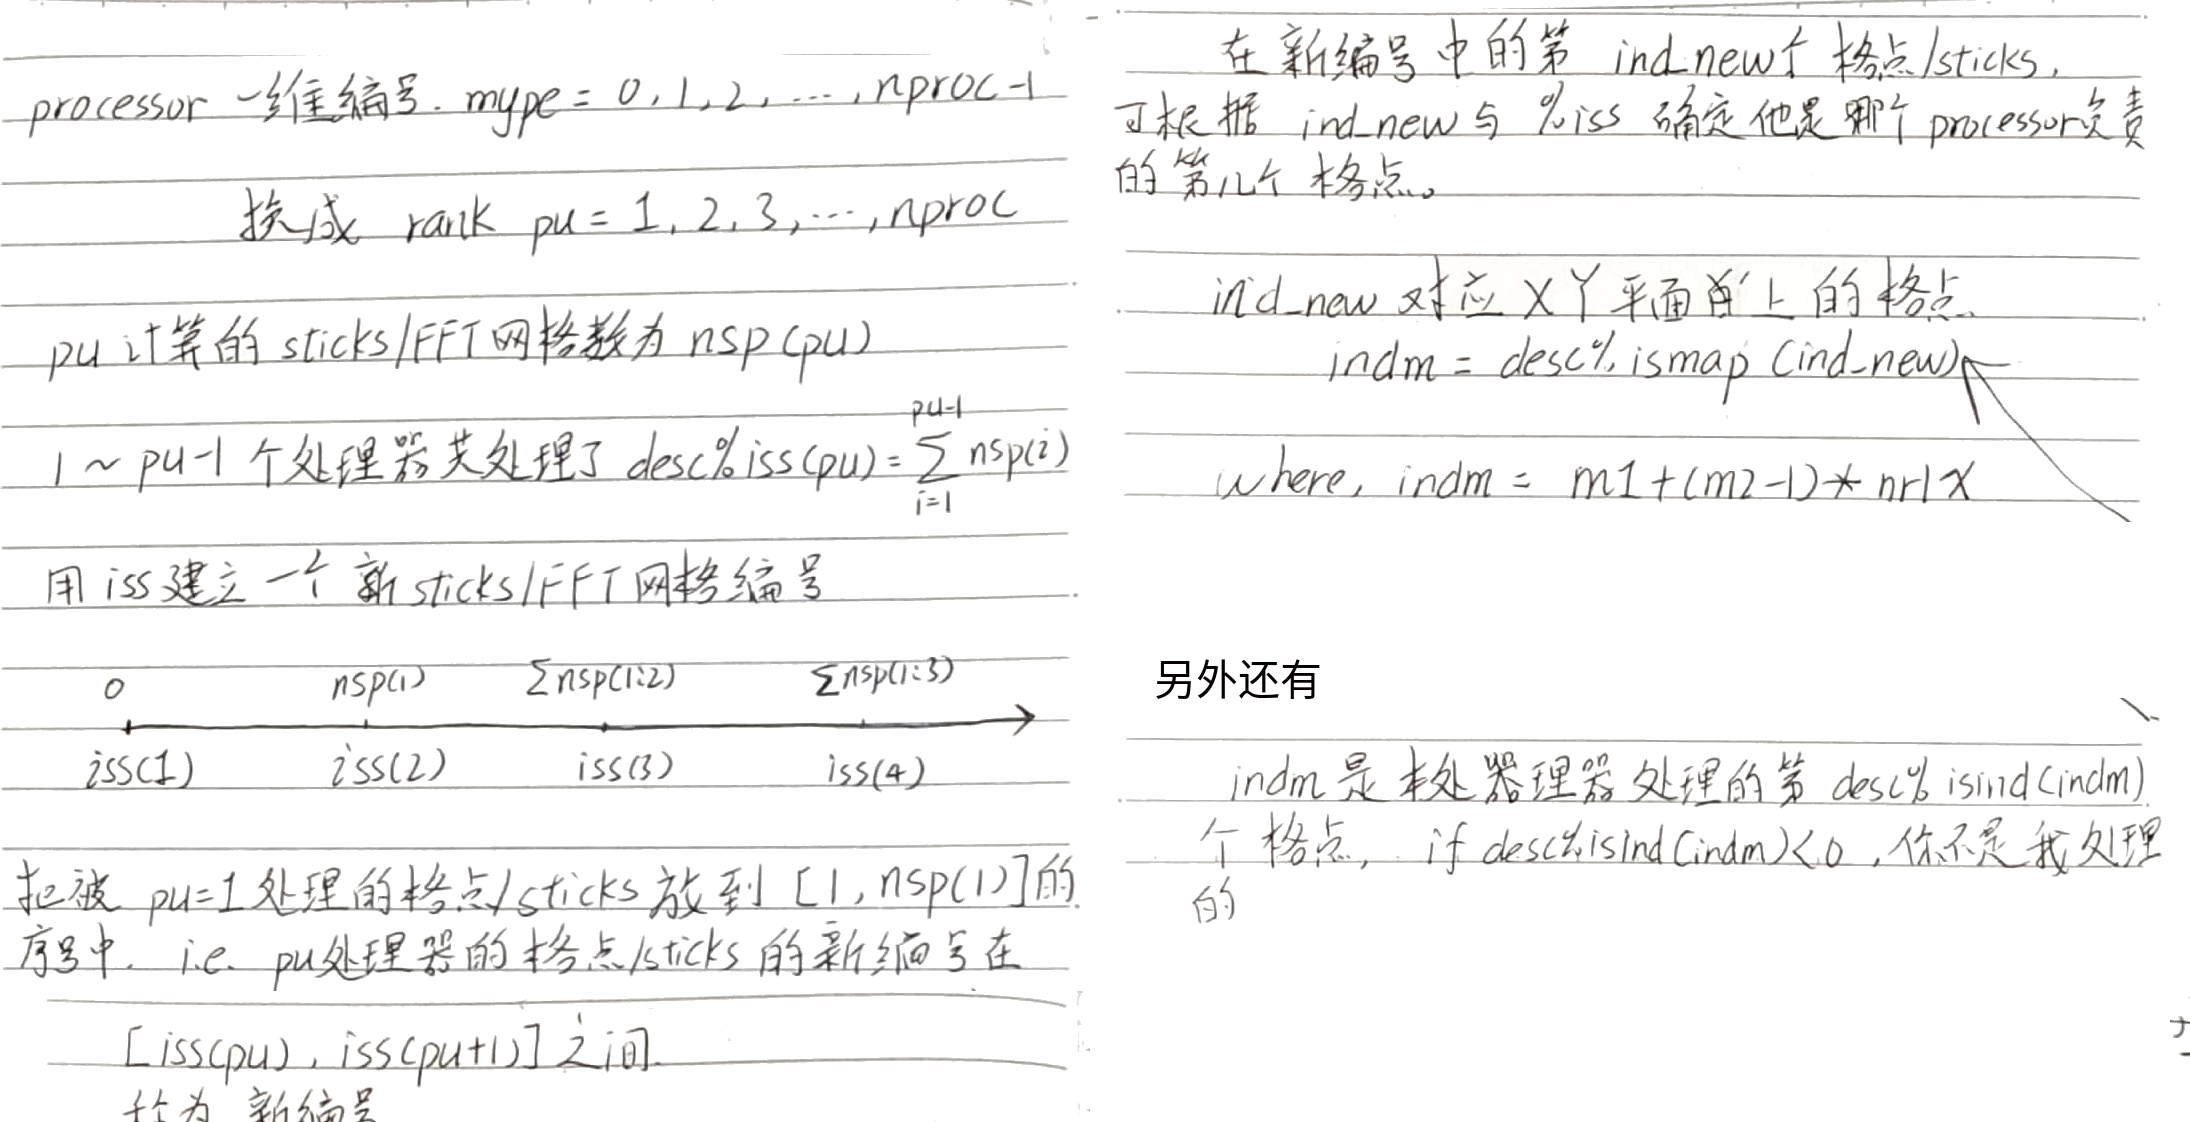 processor 一维编号. mype = 0, 1, 2, ..., nproc-1
换成 rank pu = 1, 2, 3, ..., nproc
pu 计算的 sticks/FFT网格数为 nsp(pu)
1 ~ pu-1 个处理器共处理了 desc%iss(pu) = ∑_{i=1}^{pu-1} nsp(i)
用 iss 建立一个新 sticks/FFT网格编号
0 nsp(1) ∑nsp(1:2) ∑nsp(1:3)
iss(1) iss(2) iss(3) iss(4)
把被 pu=1 处理的格点/sticks 放到 [1, nsp(1)]的
序号中. i.e. pu处理器的格点/sticks 的新编号在
[iss(pu), iss(pu+1)] 之间.
称为 新编号
在新编号中的第 ind_new个 格点/sticks,
可根据 ind_new与 %iss 确定他是哪个processor负责
的第几个格点。
ind_new 对应 XY平面上的格点.
indm = desc%ismap (ind_new)
where, indm = m1+(m2-1)*nr1x
另外还有
indm 是本处器理器处理的第 desc%isind(indm)
个格点, if desc%isind(indm)<0, 你不是我处理
的